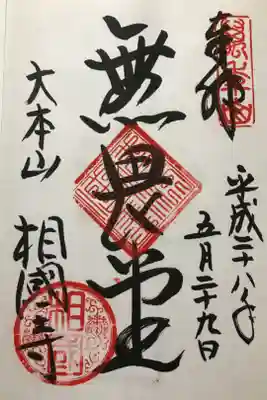 奉拝
平成二十八年
五月二十九日
無畏堂
大本山
相國寺